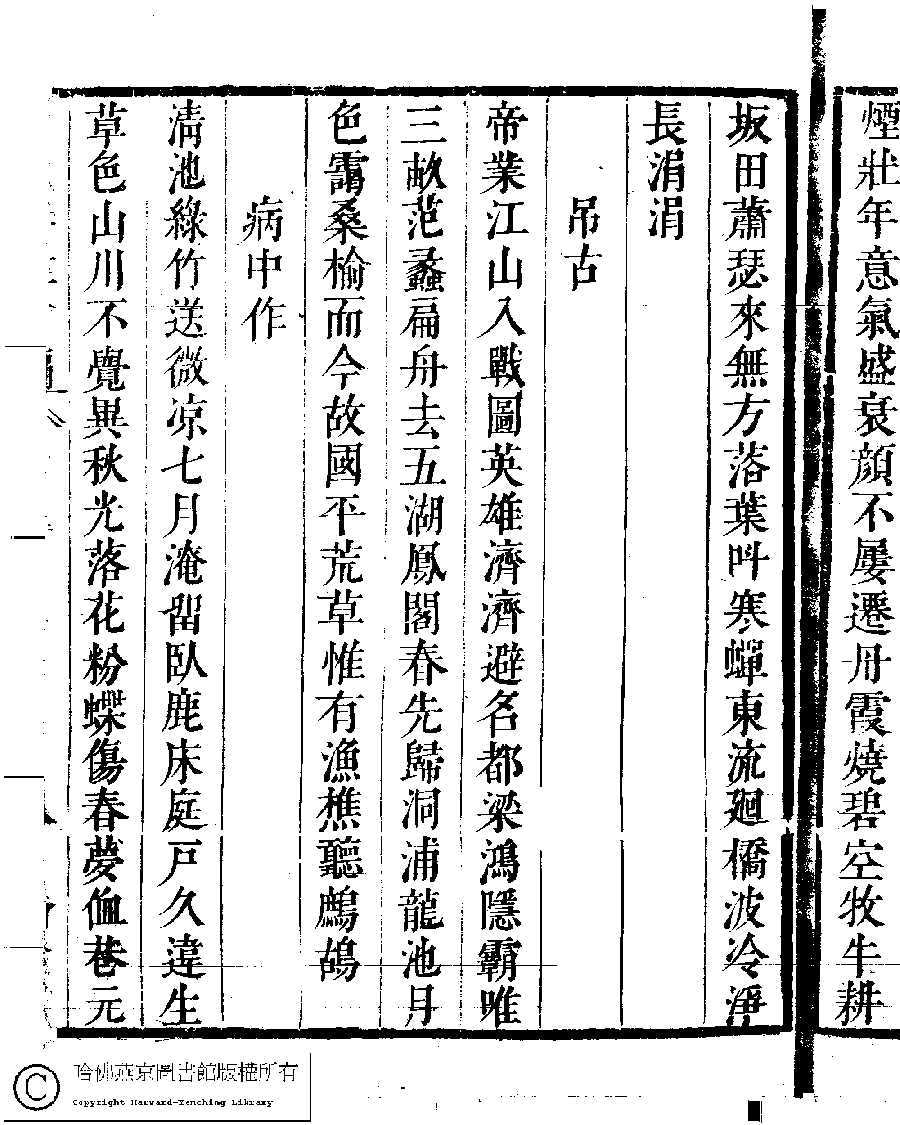 煙壯年意氣盛衰顔不屢遷丹霞燒碧空牧牛耕
坂田蕭瑟來無方落葉呌寒蟬東流廻橋波冷淨
長涓涓
吊古
帝業江山入戰圖英雄濟濟避名都梁鴻隱霸唯
三畝范蠡扁舟去五湖鳳閣春先歸洞浦龍池月
色靄桑榆而今故國平荒草惟有漁樵聽鷓鴣
病中作
清池綠竹送微凉七月淹留臥鹿床庭戸久違生
草色山川不覺異秋光落花粉蝶傷春夢巷元
哈佛燕京圖書館版權所有
Copyright Harvard-Yenching Library